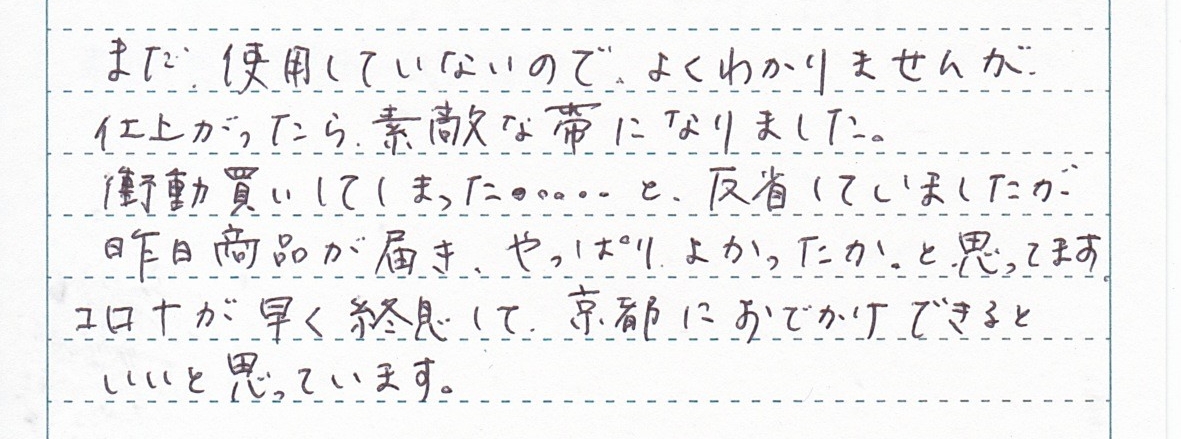 まだ、使用していないので、よくわかりませんが、
仕上がったら、素敵な帯になりました。
衝動買いしてしまった・・・・・と、反省していましたが
昨日商品が届き、やっぱり、よかったか。と思ってます。
コロナが早く終息して、京都におでかけできると
いいと思っています。